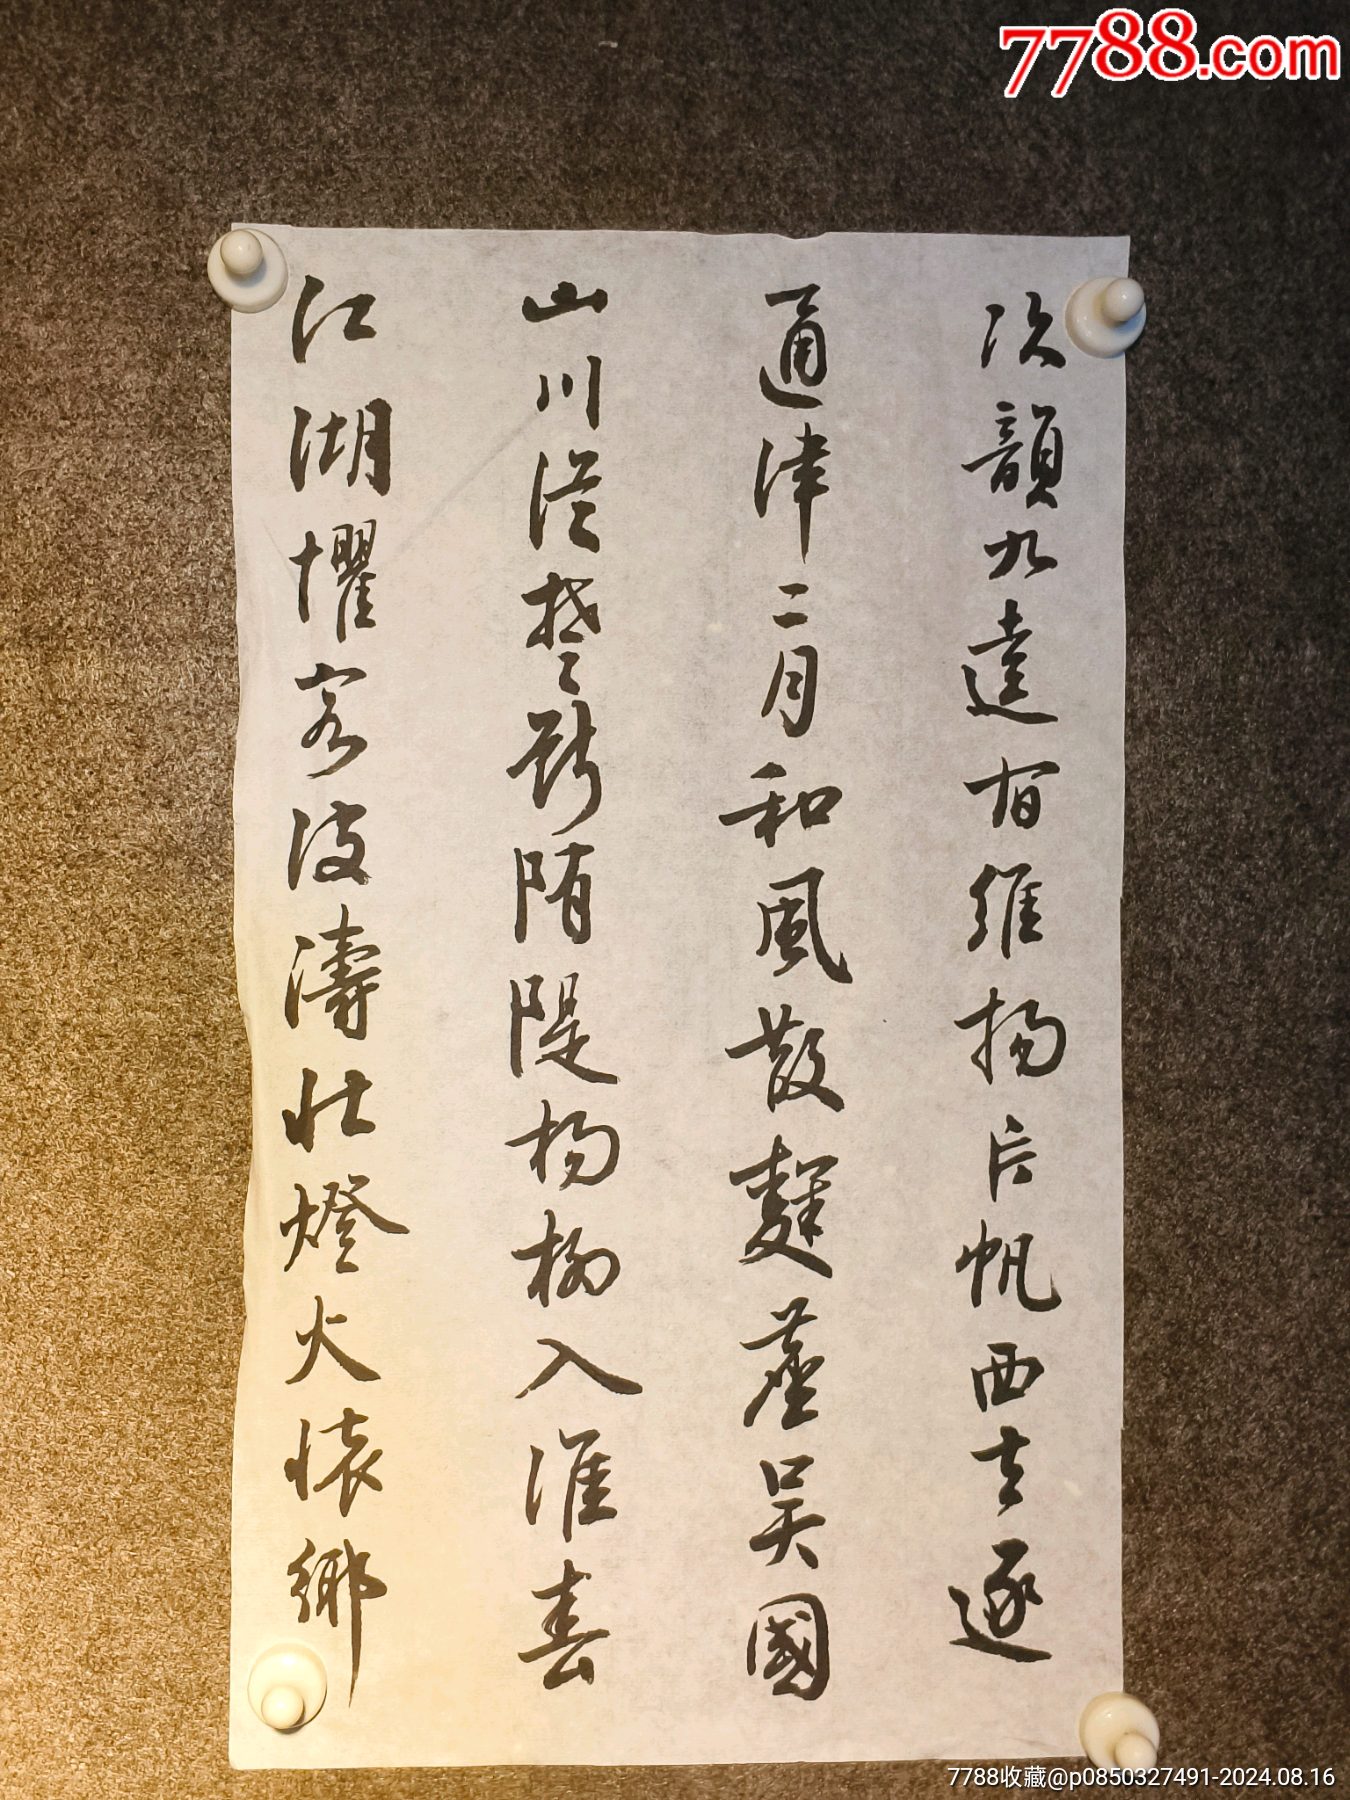 次韻九逵有維揚片帆西去逐
通津二月和風散麴塵吳國
山川從楚斷隋隄楊柳入淮春
江湖懼客波濤壯燈火懷鄉
7788.com
7788收藏@p0850327491-2024.08.16